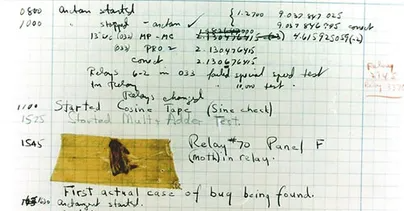 0800 Antan started { 1.2700 9.037 847 025
1000 " stopped - antan ✓ 9.037 846 995 correct
13" uc (032) MP - MC 2.130476415 4.615925059(-2)
(033) PRO 2 2.130476415
correct 2.130676415
Relays 6-2 in 033 failed special speed test
in Relay " 10,000 test.
Relays changed
Relay
1100 Started Cosine Tape (Sine check)
1525 Started Mult+Adder Test.
1545 Relay #70 Panel F
(moth) in relay.
First actual case of bug being found.
antangent started.